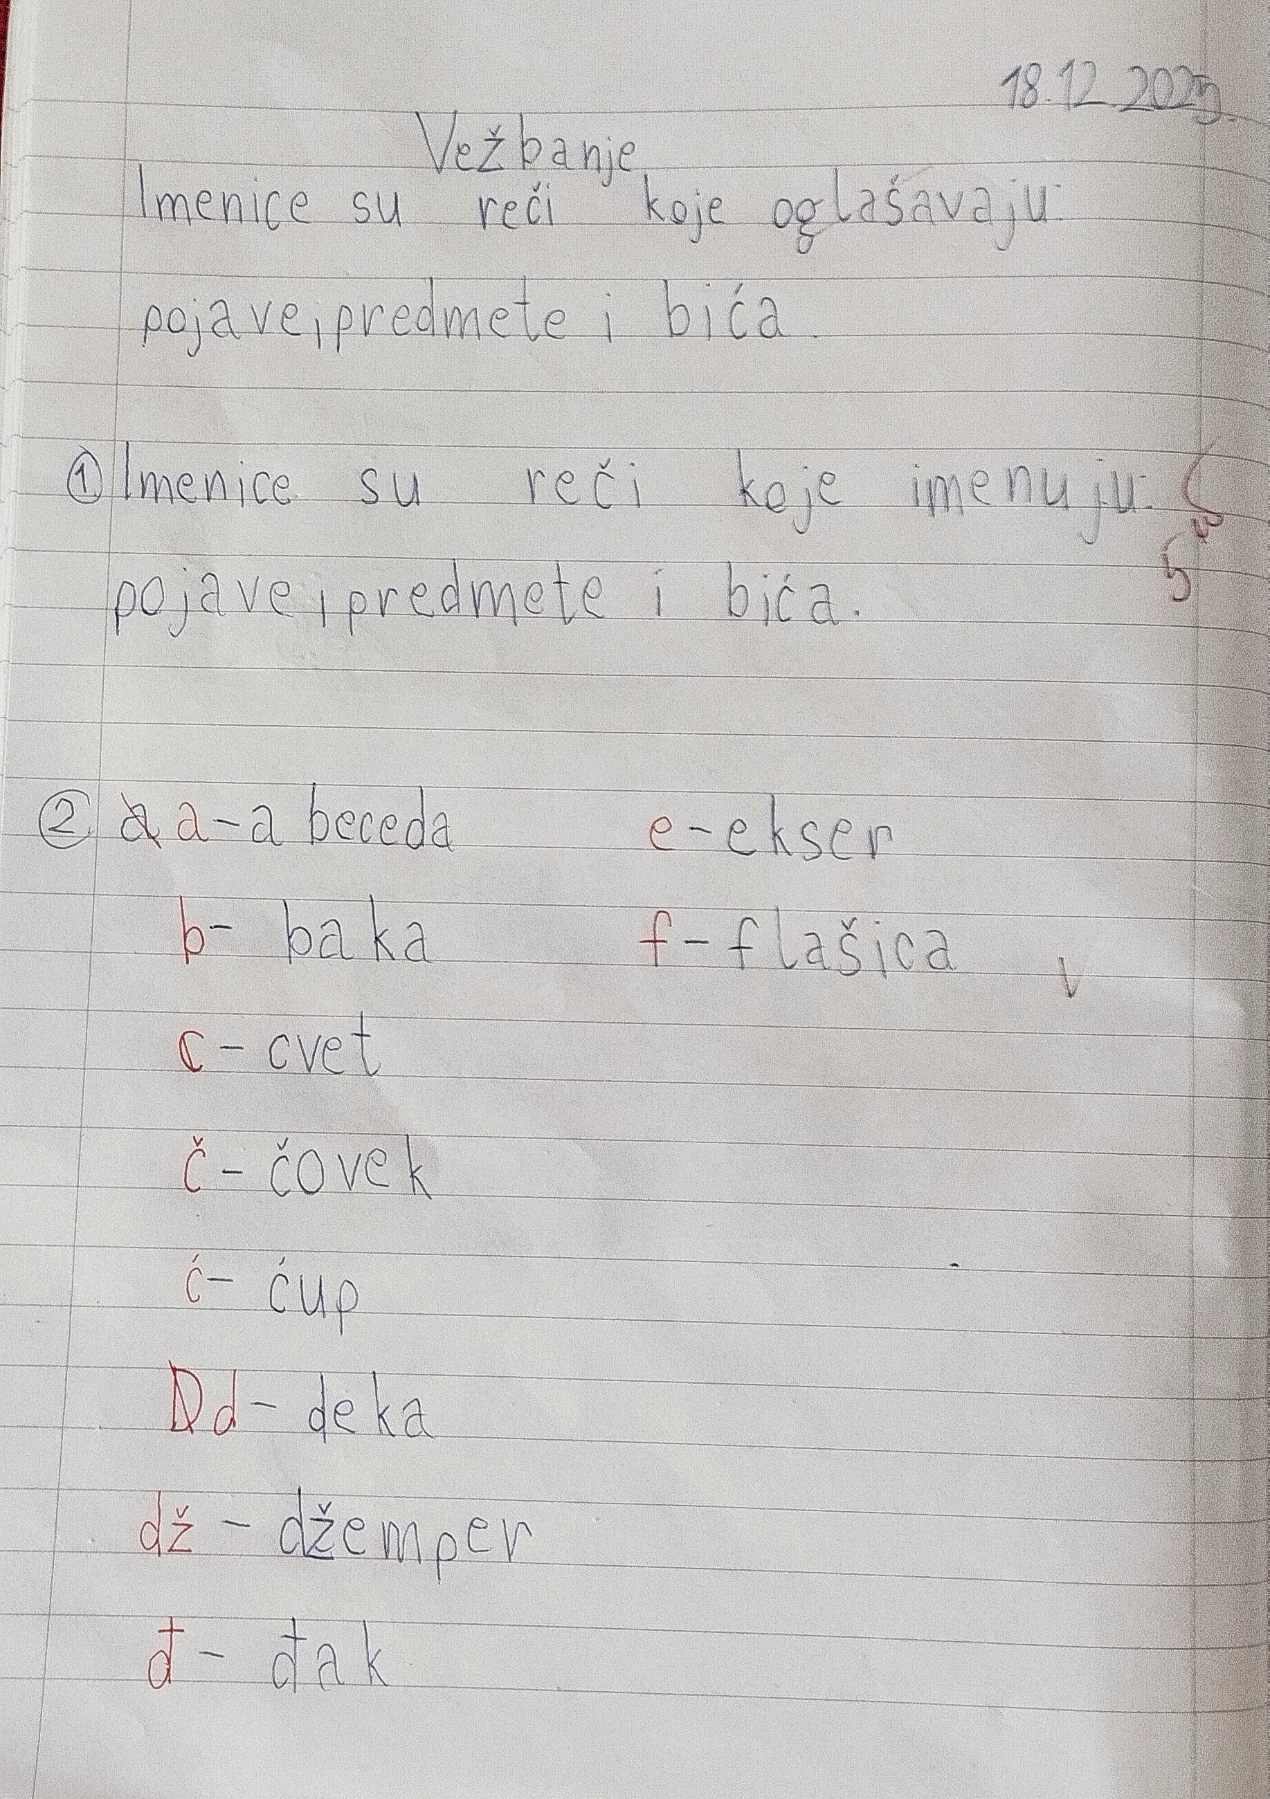 18.12.2025.
Vežbanje
Imenice su reči koje oglašavaju:
pojave, predmete i bića.
① Imenice su reči koje imenuju:
pojave, predmete i bića.
5
② a-a beceda e-ekser
b- baka f-flašica
c- cvet
č- čovek
ć- ćup
Dd- deka
dž - džemper
đ - đak